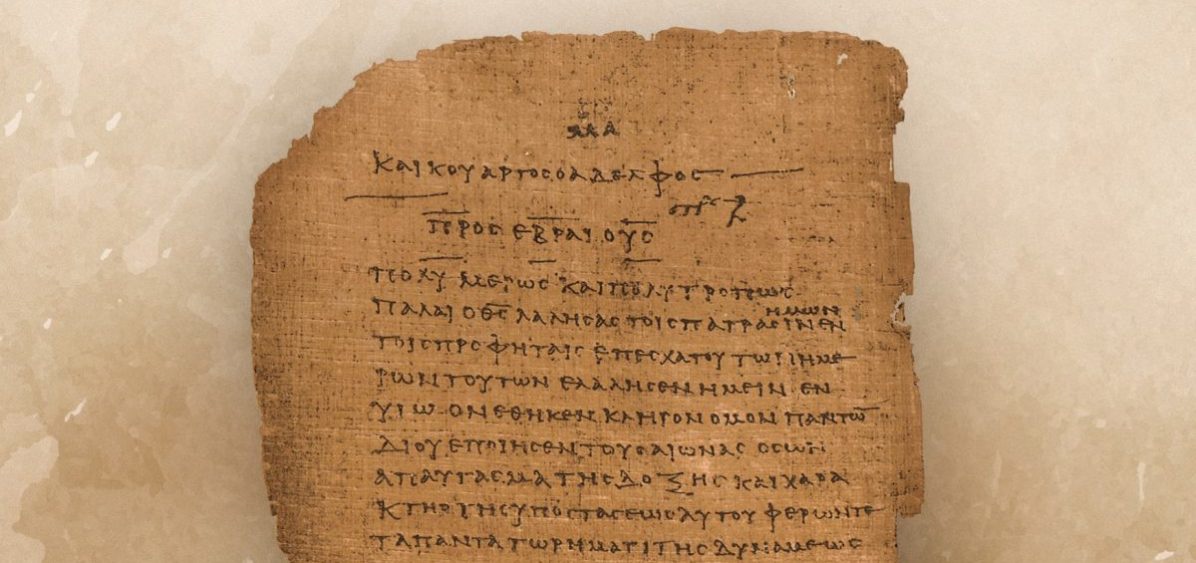 ΚΑΙ ΚΟΥΑΡΤΟϹ Ο ΑΔΕΛΦΟϹ
ΠΡΟϹ ΕΒΡΑΙΟΥϹ
ΠΟΛΥΜΕΡΩϹ ΚΑΙ ΠΟΛΥΤΡΟΠΩϹ
ΗΜΩΝ
ΠΑΛΑΙ Ο Θ̅Ϲ̅ ΛΑΛΗϹΑϹ ΤΟΙϹ ΠΑΤΡΑϹΙΝ ΕΝ
ΤΟΙϹ ΠΡΟΦΗΤΑΙϹ ΕΠ ΕϹΧΑΤΟΥ ΤΩΝ ΗΜΕ
ΡΩΝ ΤΟΥΤΩΝ ΕΛΑΛΗϹΕΝ ΗΜΕΙΝ ΕΝ
ΥΙΩ ΟΝ ΕΘΗΚΕΝ ΚΛΗΡΟΝΟΜΟΝ ΠΑΝΤΩ̅
ΔΙ ΟΥ ΕΠΟΙΗϹΕΝ ΤΟΥϹ ΑΙΩΝΑϹ ΟϹ ΩΝ
ΑΠΑΥΓΑϹΜΑ ΤΗϹ ΔΟΞΗϹ ΚΑΙ ΧΑΡΑ
ΚΤΗΡ ΤΗϹ ΥΠΟϹΤΑϹΕΩϹ ΑΥΤΟΥ ΦΕΡΩΝ ΤΕ
ΤΑ ΠΑΝΤΑ ΤΩ ΡΗΜΑΤΙ ΤΗϹ ΔΥΝΑΜΕΩϹ